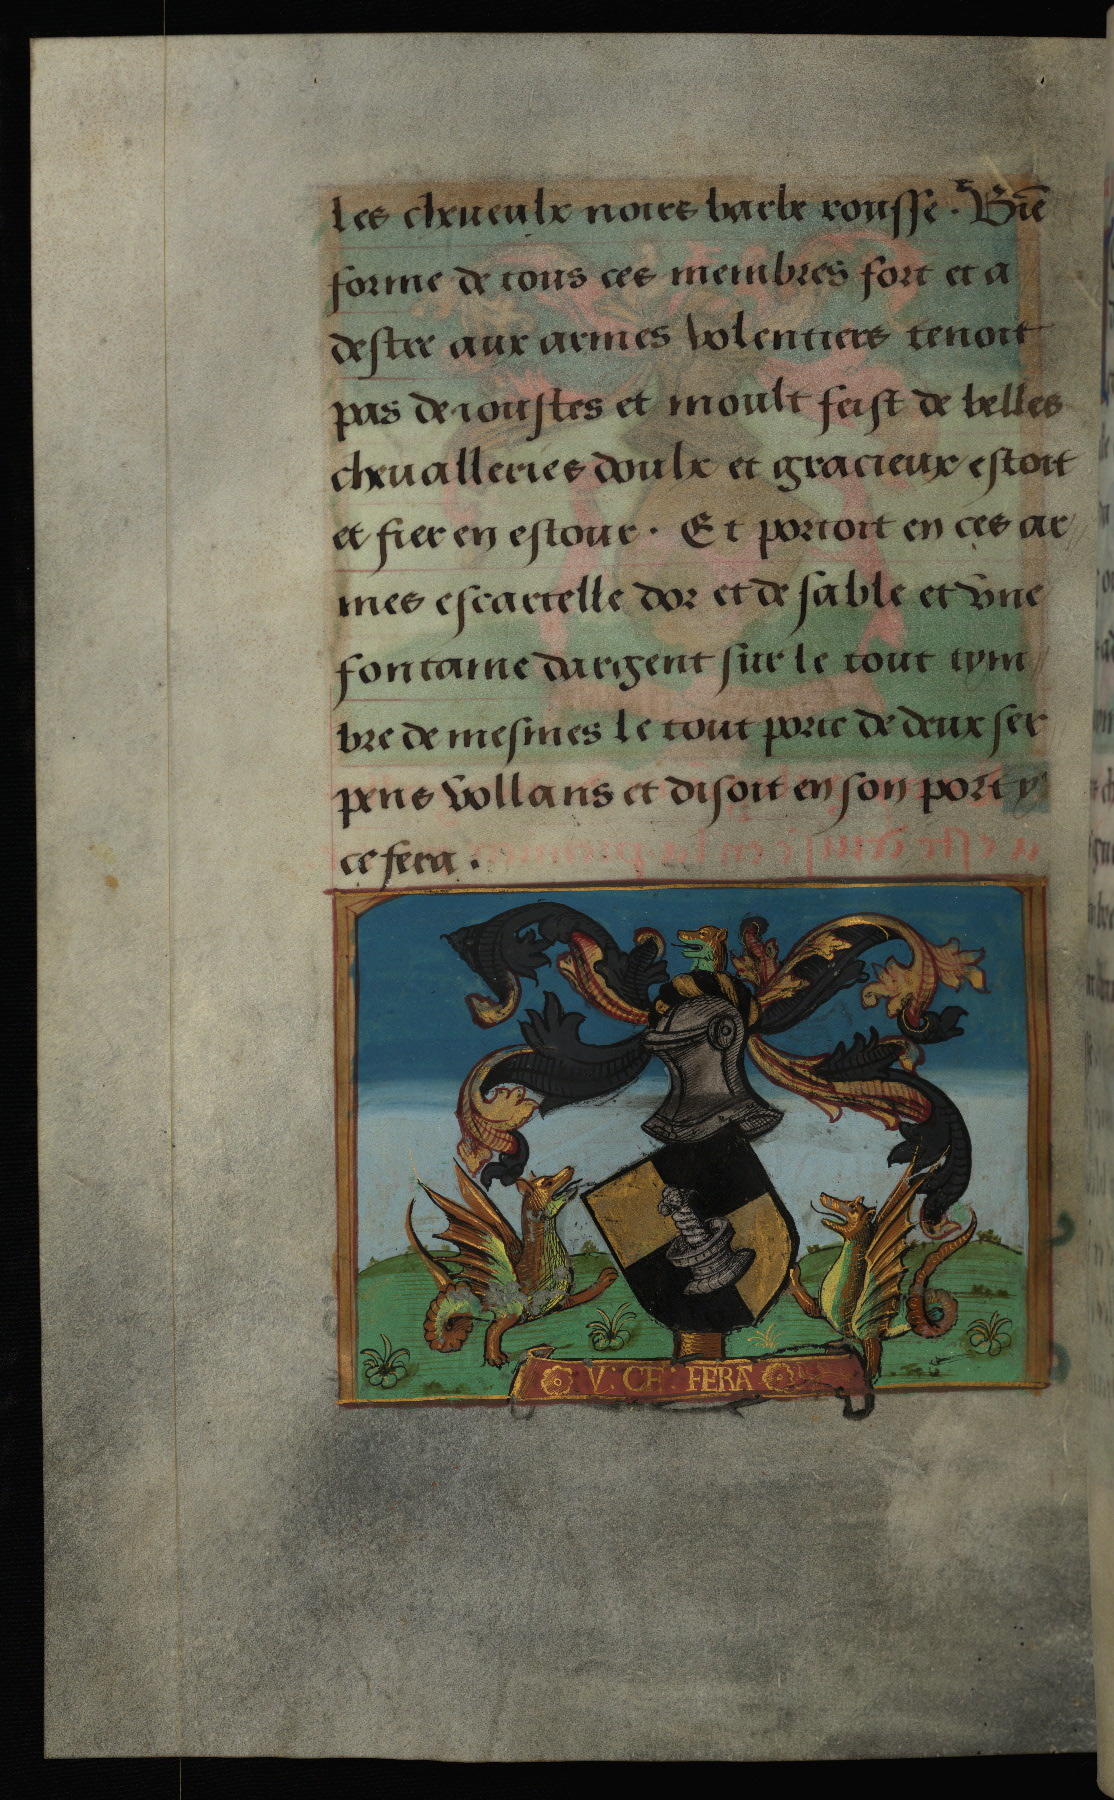 les cheueulx noirs barbe rousse . Biē
forme de tous ces membres fort et a
destre aux armes volentiers tenoit
pas de ioustes et moult feist de belles
cheualleries doulx et gracieux estoit
et fier en estour . Et portoit en ces ar
mes escartelle dor et de sable et vne
fontaine dargent sur le tout tym
bre de mesmes le tout porte de deux ser
pens vollans et disoit en son port y
ce fera .
V : CE : FERA